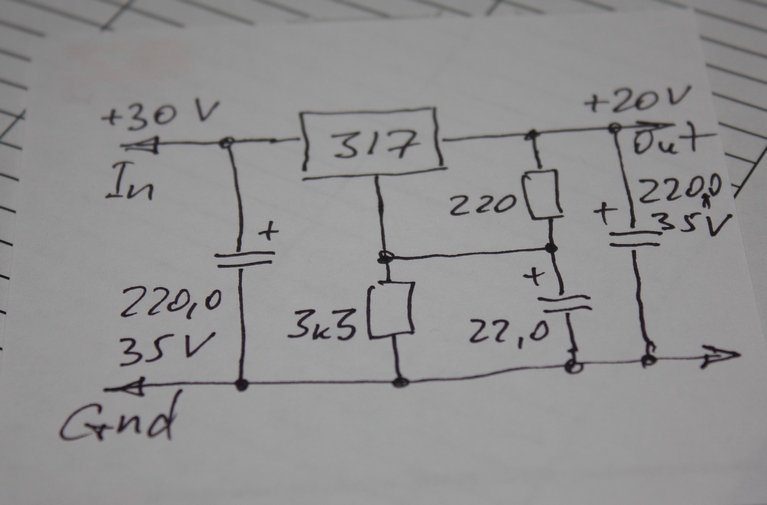 +30 V
In
317
+20V
Out
220
220,0
35V
+
+
+
220,0
35V
3k3
22,0
Gnd